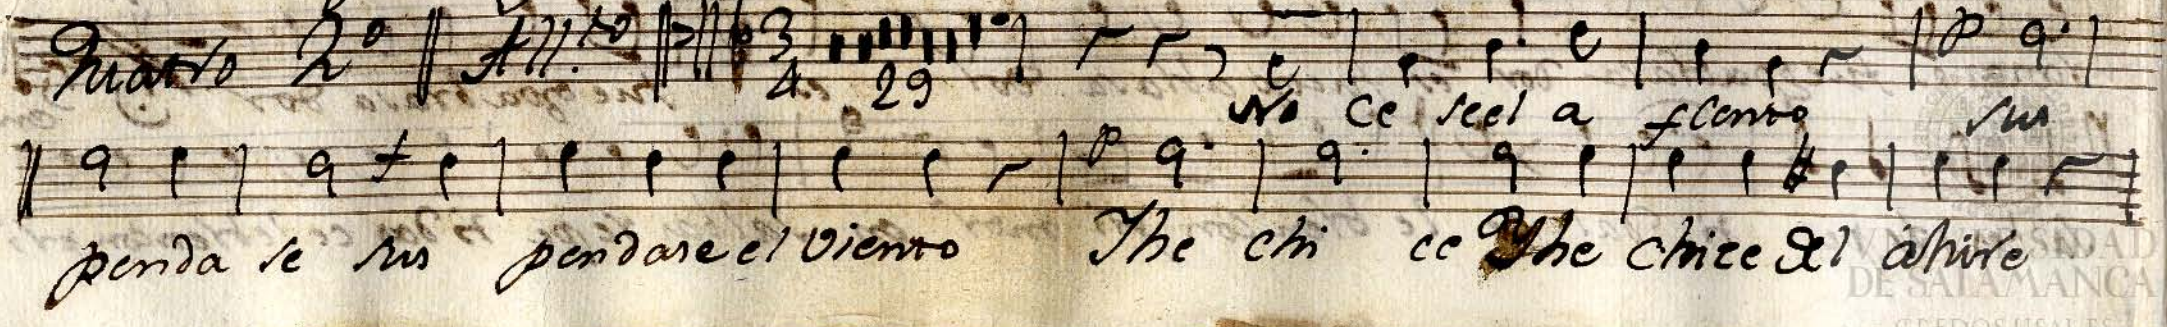 Quatro 2º All.to 3 4 29
No ce seel a sento sus
penda se sus pendase el viento Yhe chi ce Yhe chice del ahire
VNiVERSiDAD
DE SALAMANCA
CREDOS.USAL.ES